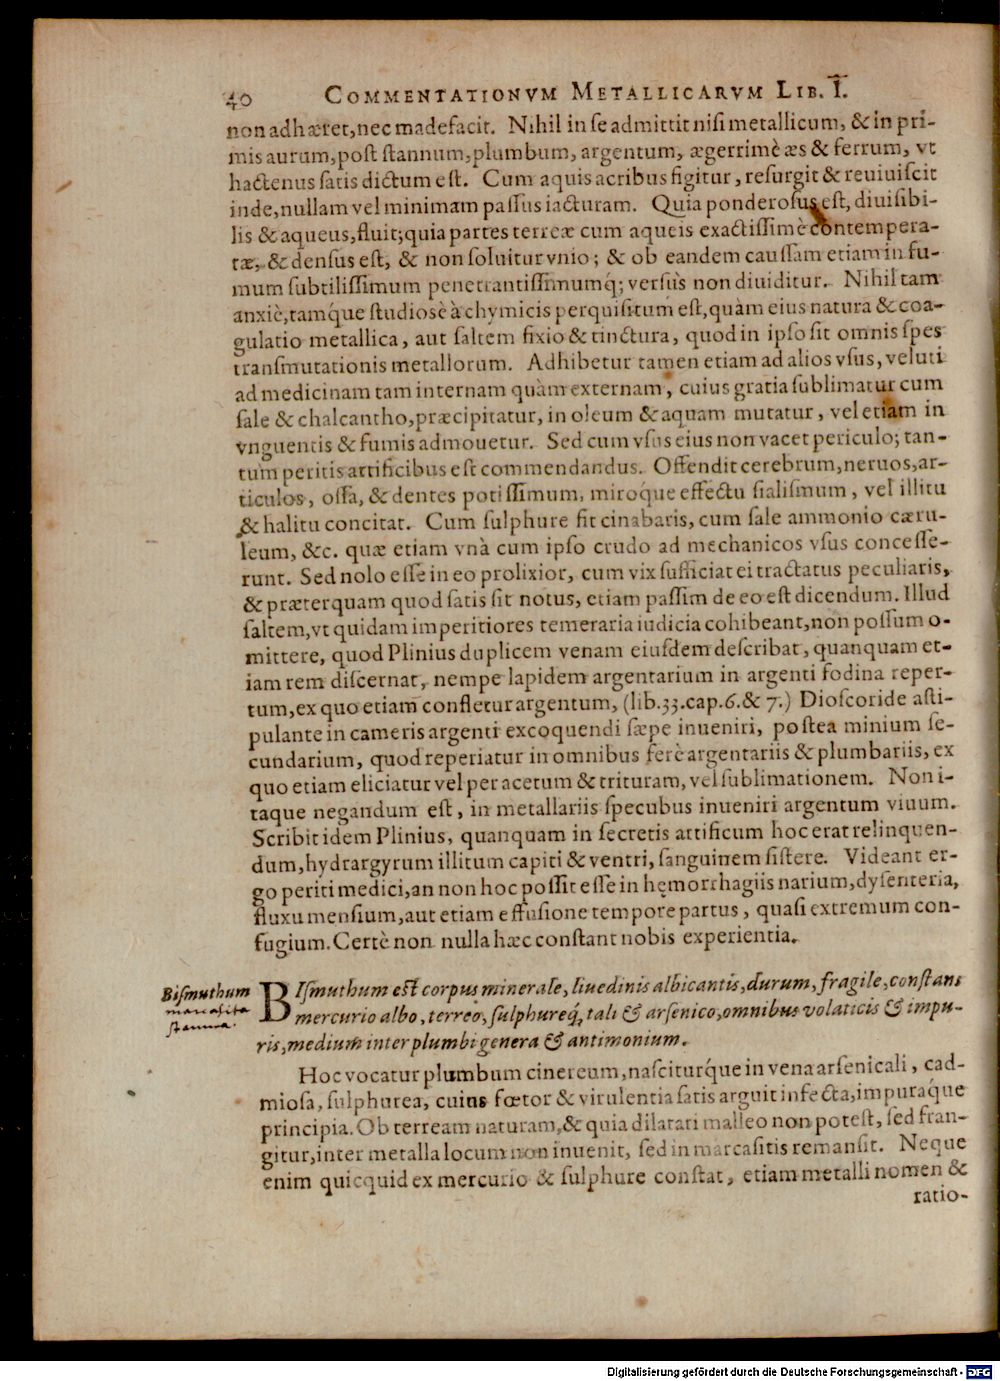 40 COMMENTATIONVM METALLICARVM LIB. I.
non adhæret, nec madefacit. Nihil in se admittit nisi metallicum, & in pri-
mis aurum, post stannum, plumbum, argentum, ægerrimè æs & ferrum, vt
hactenus satis dictum est. Cum aquis acribus figitur, resurgit & reuiuiscit
inde, nullam vel minimam passus iacturam. Quia ponderosus est, diuisibi-
lis & aqueus, fluit; quia partes terreæ cum aqueis exactissimè contempera-
tæ, & densus est, & non soluitur vnio; & ob eandem caussam etiam in fu-
mum subtilissimum penetrantissimumq́; versus non diuiditur. Nihil tam
anxiè, tamq́ue studiosè à chymicis perquisitum est, quàm eius natura & coa-
gulatio metallica, aut saltem fixio & tinctura, quod in ipso sit omnis spes
transmutationis metallorum. Adhibetur tamen etiam ad alios vsus, veluti
ad medicinam tam internam quàm externam, cuius gratia sublimatur cum
sale & chalcantho, præcipitatur, in oleum & aquam mutatur, vel etiam in
vnguentis & fumis admouetur. Sed cum vsus eius non vacet periculo; tan-
tum peritis artificibus est commendandus. Offendit cerebrum, neruos, ar-
ticulos, ossa, & dentes potissimum, miroq́ue effectu sialismum, vel illitu
& halitu concitat. Cum sulphure fit cinabaris, cum sale ammonio cæru-
leum, &c. quæ etiam vnà cum ipso crudo ad mechanicos vsus concesse-
runt. Sed nolo esse in eo prolixior, cum vix sufficiat ei tractatus peculiaris,
& præterquam quod satis sit notus, etiam passim de eo est dicendum. Illud
saltem, vt quidam imperitiores temeraria iudicia cohibeant, non possum o-
mittere, quod Plinius duplicem venam eiusdem describat, quanquam et-
iam rem discernat, nempe lapidem argentarium in argenti fodina reper-
tum, ex quo etiam confletur argentum, (lib. 33. cap. 6. & 7.) Dioscoride asti-
pulante in cameris argenti excoquendi sæpe inueniri, postea minium se-
cundarium, quod reperiatur in omnibus ferè argentariis & plumbariis, ex
quo etiam eliciatur vel per acetum & trituram, vel sublimationem. Non i-
taque negandum est, in metallariis specubus inueniri argentum viuum.
Scribit idem Plinius, quanquam in secretis artificum hoc erat relinquen-
dum, hydrargyrum illitum capiti & ventri, sanguinem sistere. Videant er-
go periti medici, an non hoc possit esse in hęmorrhagiis narium, dysenteria,
fluxu mensium, aut etiam effusione tempore partus, quasi extremum con-
fugium. Certè non nulla hæc constant nobis experientia.
Bismuthum
marcasita
stannea.
BIsmuthum est corpus minerale, liuedinis albicantis, durum, fragile, constans
mercurio albo, terreo, sulphureq́, tali & arsenico, omnibus volaticis & impu-
ris, medium inter plumbi genera & antimonium.
Hoc vocatur plumbum cinereum, nasciturq́ue in vena arsenicali, cad-
miosa, sulphurea, cuius fœtor & virulentia satis arguit infecta, impuraq́ue
principia. Ob terream naturam, & quia dilatari malleo non potest, sed fran-
gitur, inter metalla locum non inuenit, sed in marcasitis remansit. Neque
enim quicquid ex mercurio & sulphure constat, etiam metalli nomen &
ratio-
Digitalisierung gefördert durch die Deutsche Forschungsgemeinschaft - DFG